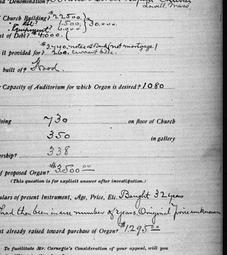 Denomination?
Lowell, Mass
Church Building? $22500.
" Lot 1500. 30,000.
Equipment 6000
t of Debt? $4000.
$3740. notes & bank not mortgage
it provided for? 260. current bills.
built of? Wood
Capacity of Auditorium for which Organ is desired? 1080
730 on floor of Church
350 in gallery
338
of proposed Organ? $3500.00
(This question is for explicit answer after investigation.)
ulars of present Instrument, Age, Price, Etc. Bought 32 years
had then been in use number of years. Original price unknown
nt already raised toward purchase of Organ? $1295.00
To facilitate Mr. Carnegie's Consideration of your appeal, will you